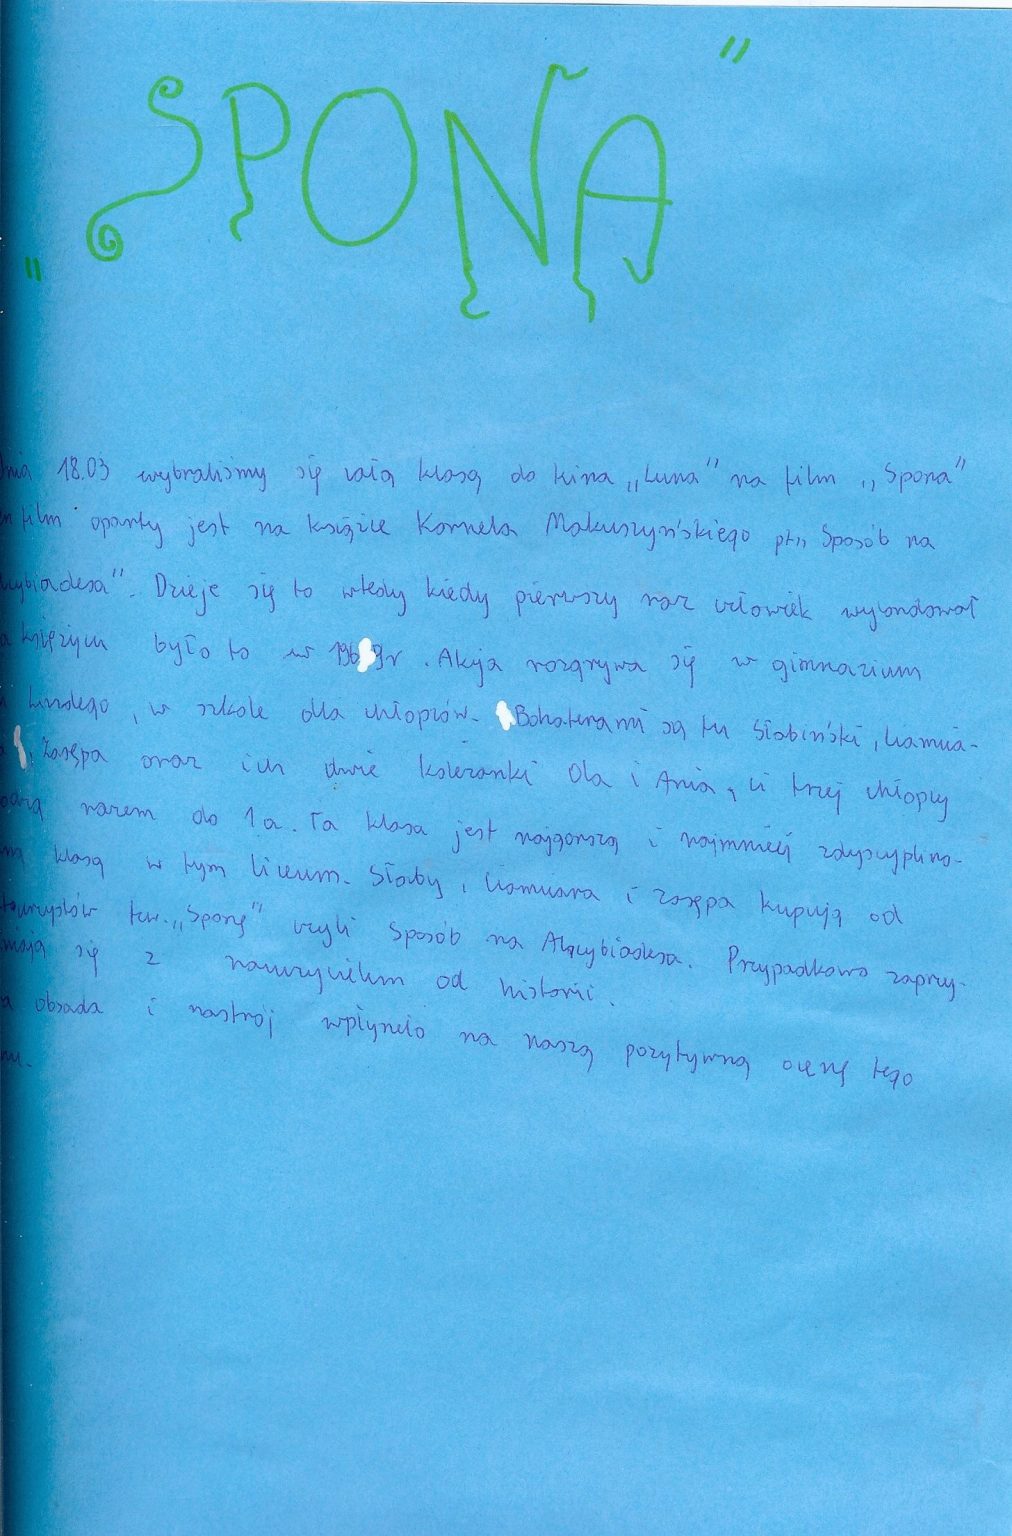 „SPONA"
dnia 18.03 wybraliśmy się całą klasą do kina „Luna" na film „Spona"
film oparty jest na książce Kornela Makuszyńskiego pt„ Sposób na
Alcybiadesa". Dzieje się to wtedy kiedy pierwszy raz człowiek wylondował
księżycu było to w 1969r. Akcja rozgrywa się w gimnazium
Lindego, w szkole dla chłopców. Bohaterami są tu Słabiński, Ciamcia-
, Zasępa oraz ich dwie koleżanki Ola i Ania, ci trzej chłopcy
razem do 1a. Ta klasa jest najgorszą i najmniej zdyscyplino-
klasą w tym liceum. Słaby, Ciamciara i Zasępa kupują od
tzw. „Sponę" czyli Sposób na Alcybiadesa. Przypadkowo zaprzy-
się z nauczycielem od historii.
obsada i nastroj wpłyneło na naszą pozytywną ocenę tego